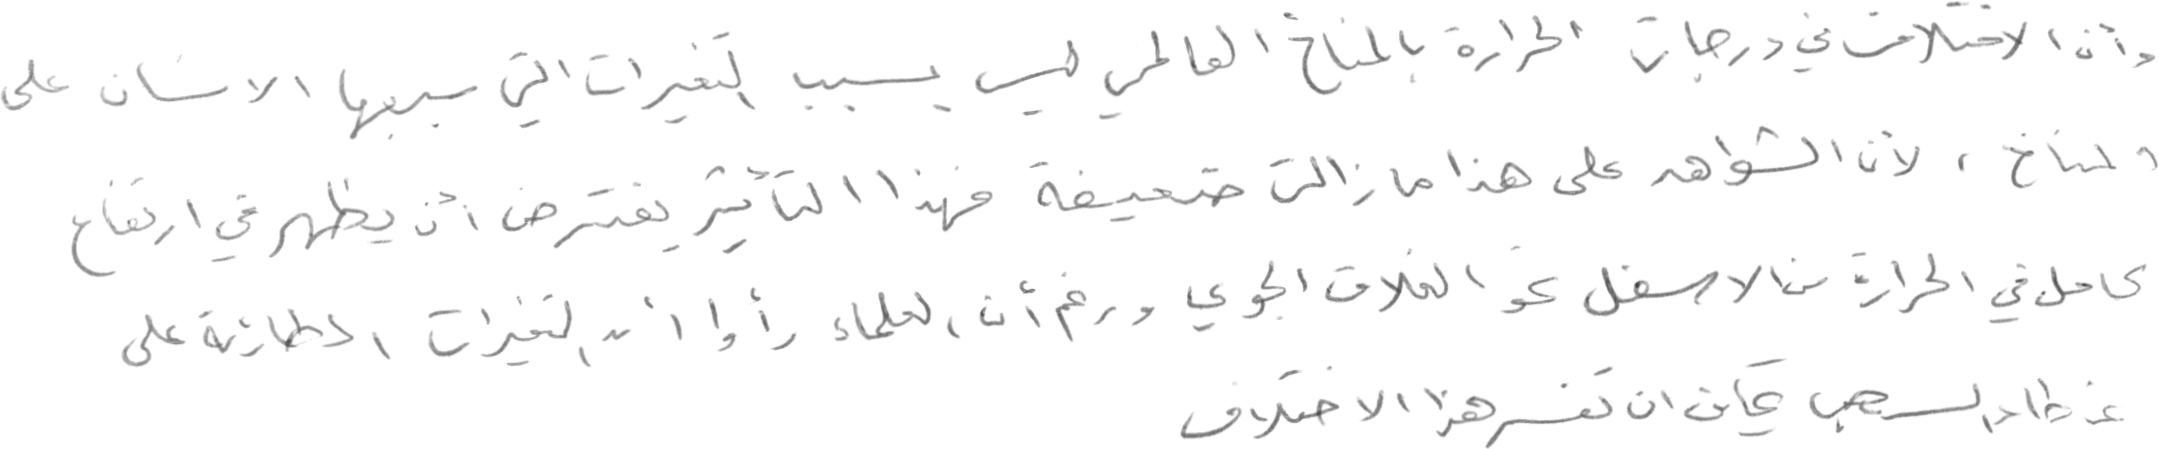 وأن الاختلافت في درجات الحرارة بالمناخ العالمي ليس بسبب التغيرات التي سببها الانسان على
المناخ ، لأن الشواهد على هذا مازالت ضعيفة فهذا التأثير يفترض أن يظهر في ارتفاع
كامل في الحرارة من الاسفل نحو الغلاف الجوي ورغم أن العلماء رأوا أن التغيرات الطارئة على
غطاء السحب يمكن ان تفسر هذا الاختلاف